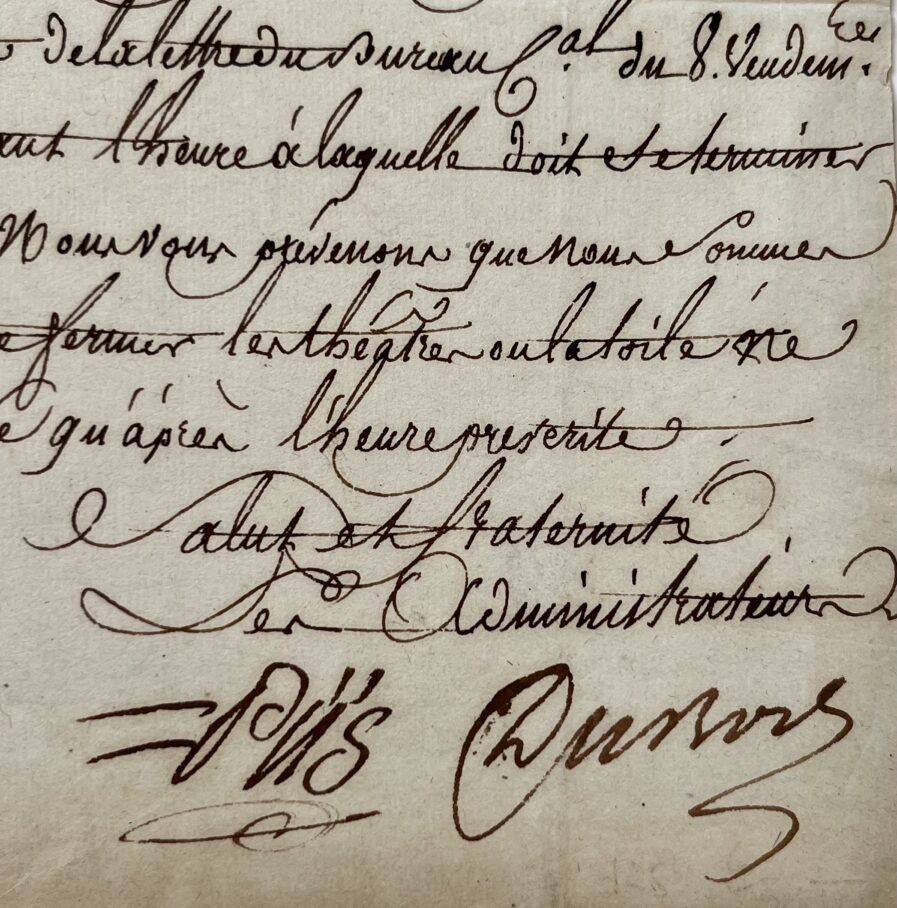 de la lettre du Bureau C.al du 8. Vendem.re
ant l'heure à laquelle doit se terminer
Nous vous prévenons que nous sommes
e fermer les théâtres ou la toile ne
e qu'après l'heure prescrite.
Salut et fraternité
Les Administrateurs
Piis DuBois